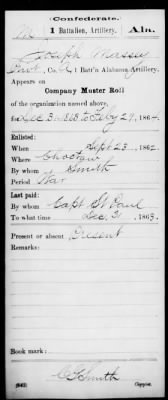 Confederate.
M 1 Battalion, Artillery. Ala.
Joseph Massey
Pvt, Co. C, 1 Batt'n Alabama Artillery.
Appears on
Company Muster Roll
of the organization named above,
for Dec 31 1863 to Feby 29, 1864.
Enlisted:
When Sept 23, 1862.
Where Choctaw
By whom Smith
Period War
Last paid:
By whom Capt St Paul
To what time Dec. 31, 1863.
Present or absent Present
Remarks:
Book mark:
(642) Copyist.